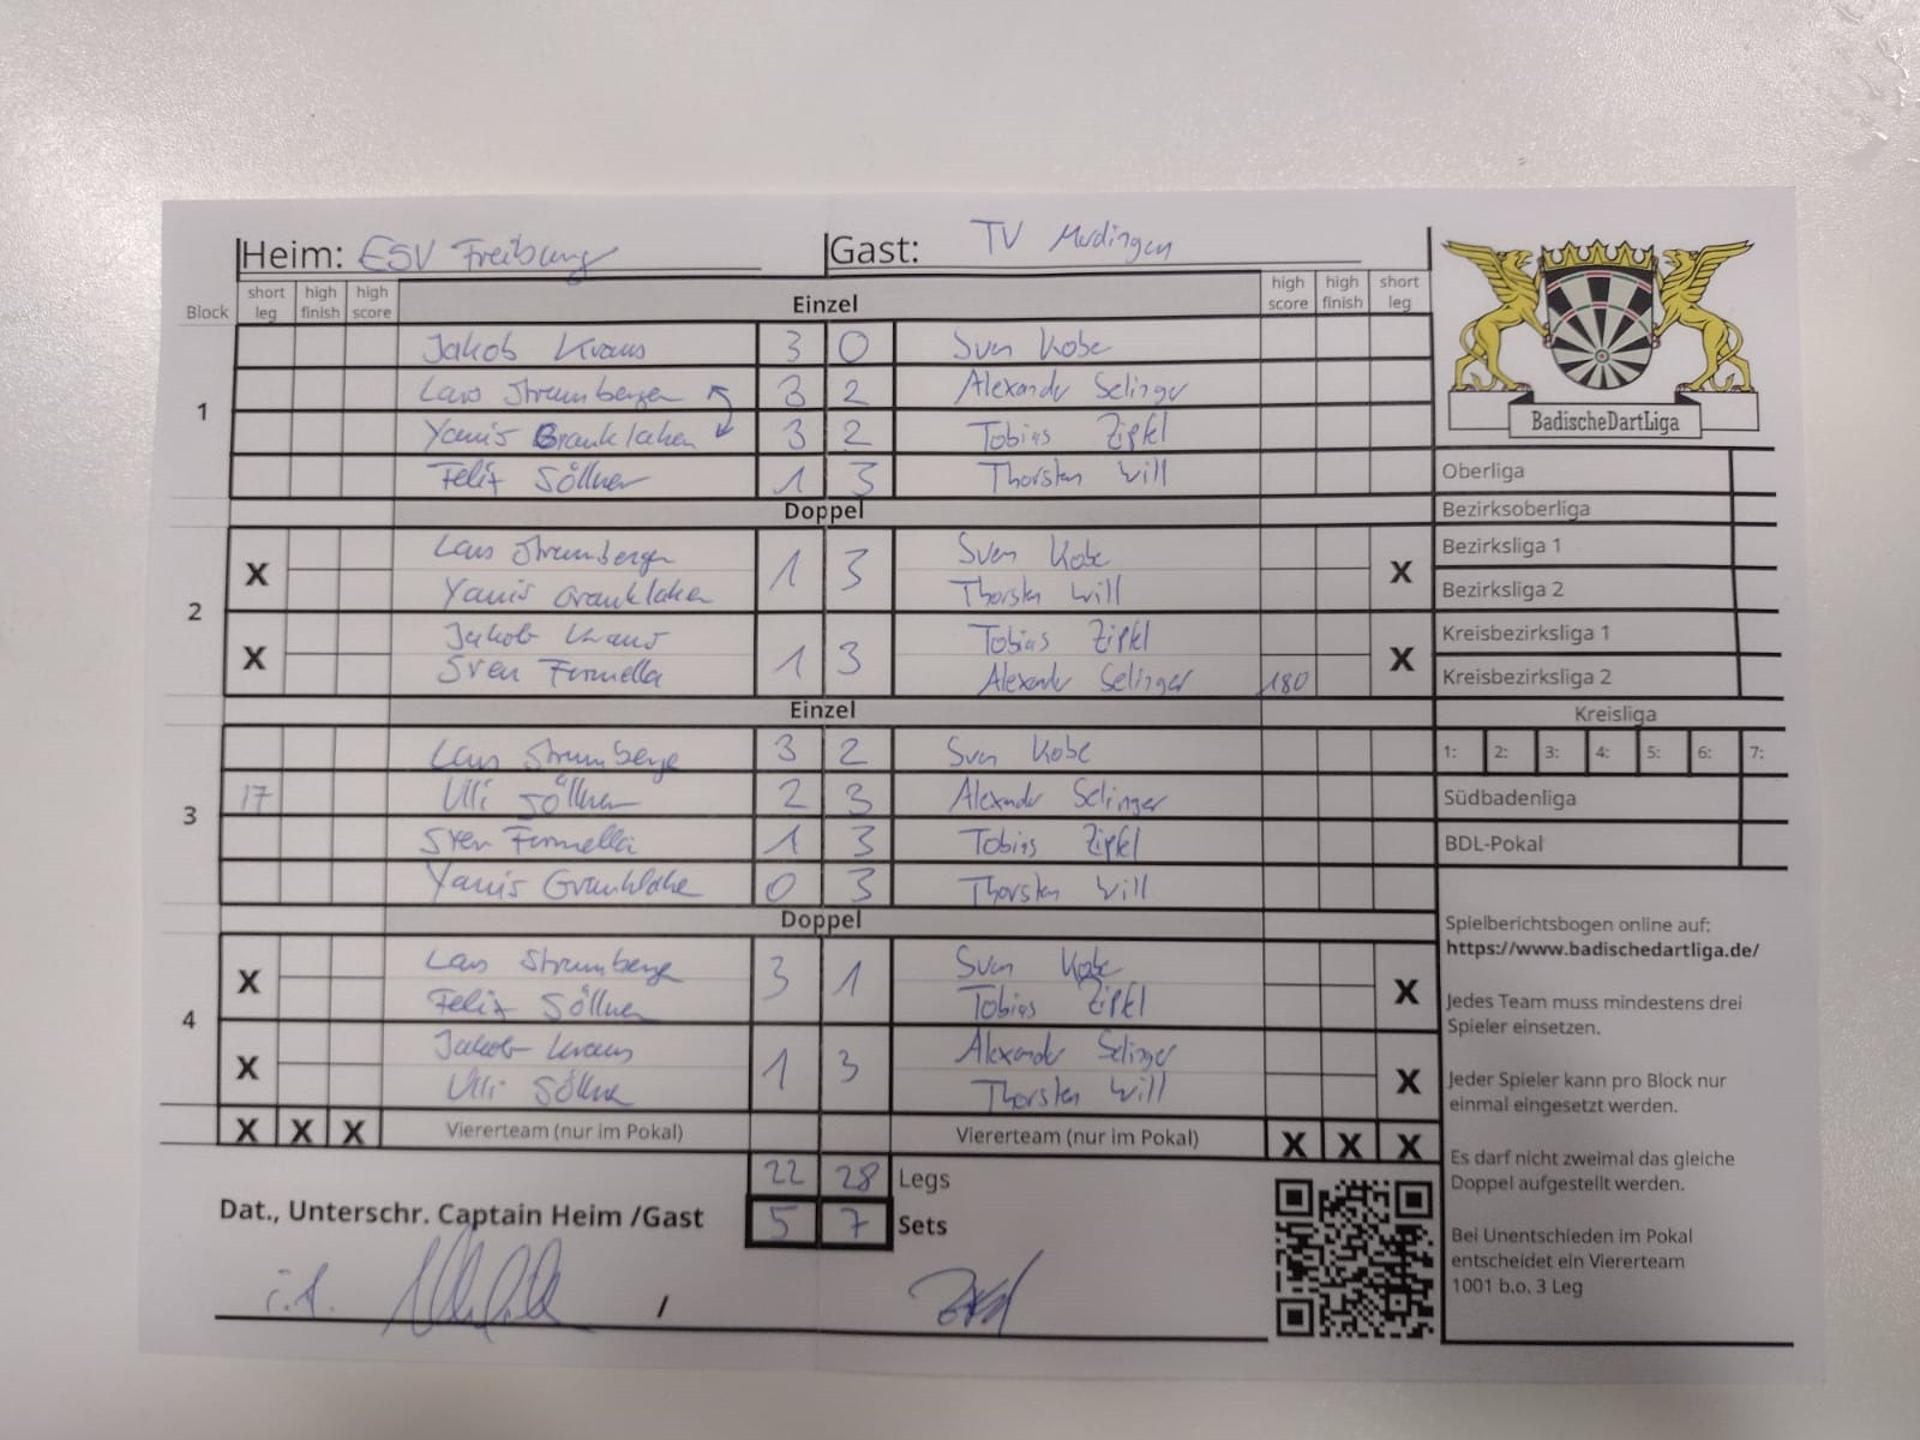 Heim: ESV Freiburg Gast: TV Merdingen
Block short leg high finish high score Einzel high score high finish short leg
1
Jakob Kraus 3 0 Sven Kobe
Lars Strumberger 3 2 Alexander Selinger
Yanis Granklaken 3 2 Tobias Zipfel
Felix Söllner 1 3 Thorsten Will
Doppel
2
X Lars Strumberger 1 3 Sven Kobe X
Yanis Granklaken Thorsten Will
X Jakob Kraus 1 3 Tobias Zipfel X
Sven Formella Alexander Selinger 180
Einzel
3
Lars Strumberge 3 2 Sven Kobe
17 Ulli Söllner 2 3 Alexander Selinger
Sven Formella 1 3 Tobias Zipfel
Yanis Granklake 0 3 Thorsten Will
Doppel
4
X Lars Strumberge 3 1 Sven Kobe X
Felix Söllner Tobias Zipfel
X Jakob Kraus 1 3 Alexander Selinger X
Ulli Söllne Thorsten Will
X X X Viererteam (nur im Pokal) Viererteam (nur im Pokal) X X X
22 28 Legs
Dat., Unterschr. Captain Heim /Gast 5 7 Sets
/
BadischeDartLiga
Oberliga
Bezirksoberliga
Bezirksliga 1
Bezirksliga 2
Kreisbezirksliga 1
Kreisbezirksliga 2
Kreisliga
1: 2: 3: 4: 5: 6: 7:
Südbadenliga
BDL-Pokal
Spielberichtsbogen online auf:
https://www.badischedartliga.de/
Jedes Team muss mindestens drei
Spieler einsetzen.
Jeder Spieler kann pro Block nur
einmal eingesetzt werden.
Es darf nicht zweimal das gleiche
Doppel aufgestellt werden.
Bei Unentschieden im Pokal
entscheidet ein Viererteam
1001 b.o. 3 Leg